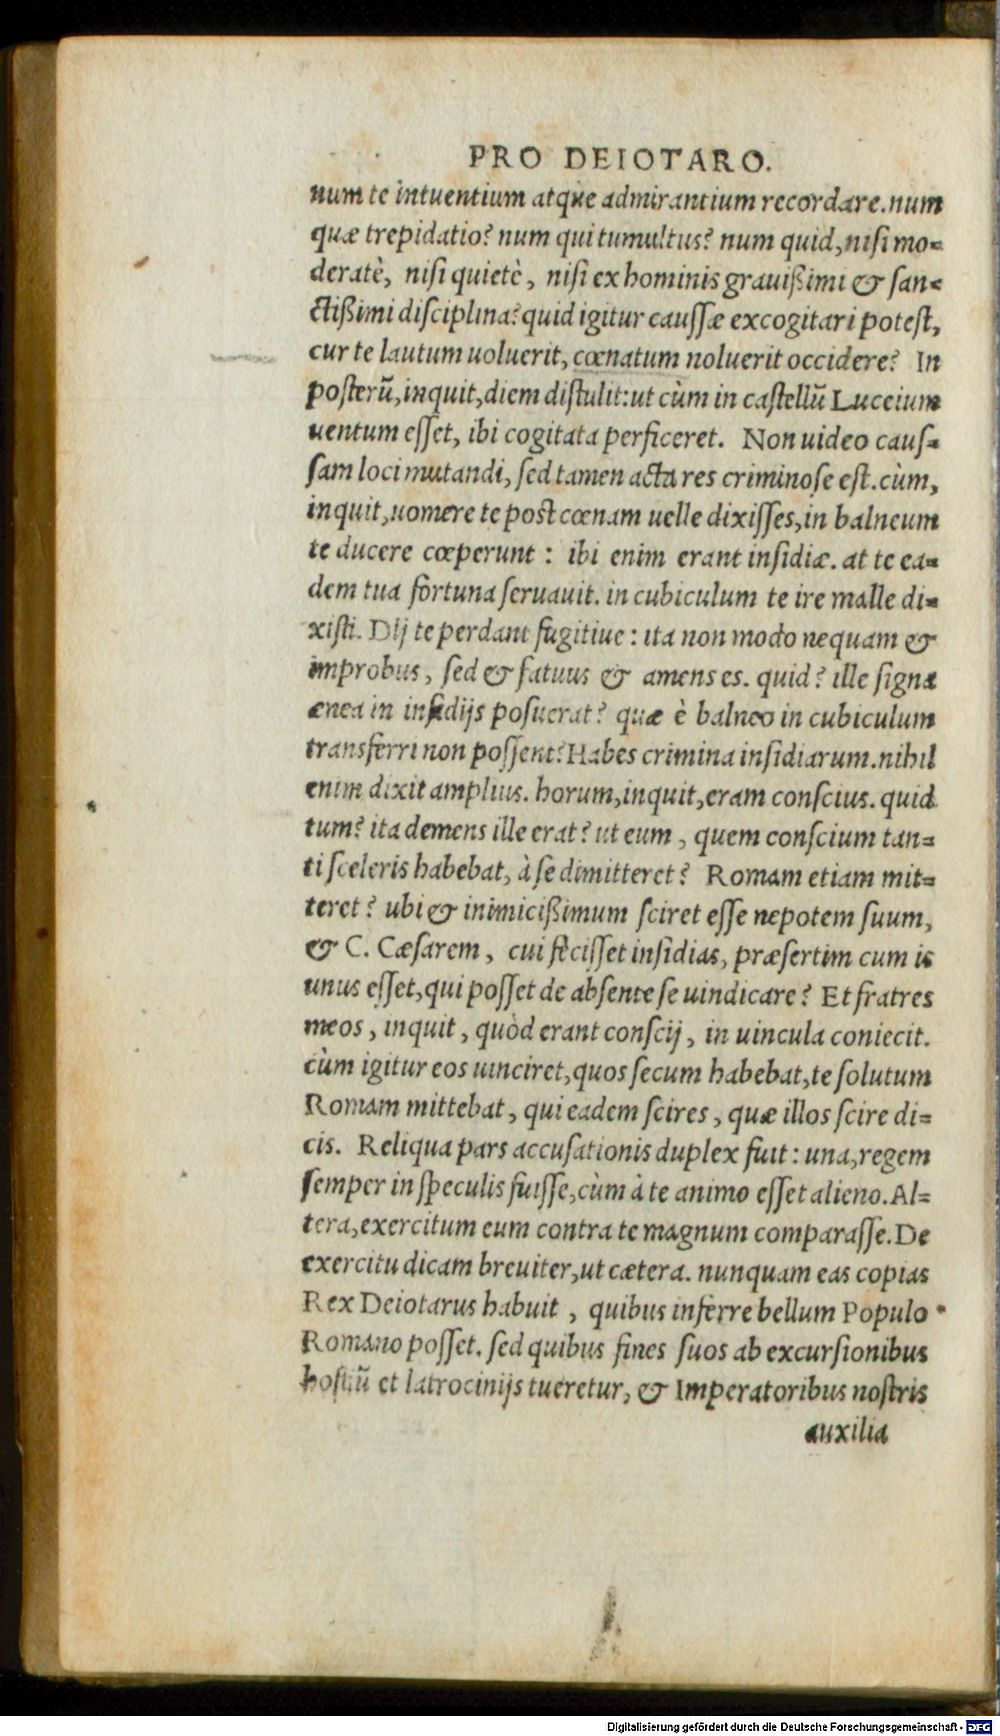 PRO DEIOTARO.
num te intuentium atque admirantium recordare. num
quæ trepidatio? num qui tumultus? num quid, nisi mo-
deratè, nisi quietè, nisi ex hominis grauißimi & san-
ctißimi disciplina? quid igitur caussæ excogitari potest,
cur te lautum uoluerit, cœnatum noluerit occidere? In
posterū, inquit, diem distulit: ut cùm in castellū Luceium
uentum esset, ibi cogitata perficeret. Non uideo caus-
sam loci mutandi, sed tamen acta res criminose est. cùm,
inquit, uomere te post cœnam uelle dixisses, in balneum
te ducere cœperunt : ibi enim erant insidiæ. at te ea-
dem tua fortuna seruauit. in cubiculum te ire malle di-
xisti. Dij te perdant fugitiue : ita non modo nequam &
improbus, sed & fatuus & amens es. quid? ille signa
ænea in insidijs posuerat? quæ è balneo in cubiculum
transferri non possent? Habes crimina insidiarum. nihil
enim dixit amplius. horum, inquit, eram conscius. quid
tum? ita demens ille erat? ut eum, quem conscium tan-
ti sceleris habebat, à se dimitteret? Romam etiam mit-
teret? ubi & inimicißimum sciret esse nepotem suum,
& C. Cæsarem, cui fecisset insidias, præsertim cum is
unus esset, qui posset de absente se uindicare? Et fratres
meos, inquit, quòd erant conscij, in uincula coniecit.
cùm igitur eos uinciret, quos secum habebat, te solutum
Romam mittebat, qui eadem scires, quæ illos scire di-
cis. Reliqua pars accusationis duplex fuit : una, regem
semper in speculis fuisse, cùm à te animo esset alieno. Al-
tera, exercitum eum contra te magnum comparasse. De
exercitu dicam breuiter, ut cætera. nunquam eas copias
Rex Deiotarus habuit, quibus inferre bellum Populo
Romano posset. sed quibus fines suos ab excursionibus
hostiū et latrocinijs tueretur, & Imperatoribus nostris
auxilia
Digitalisierung gefördert durch die Deutsche Forschungsgemeinschaft - DFG